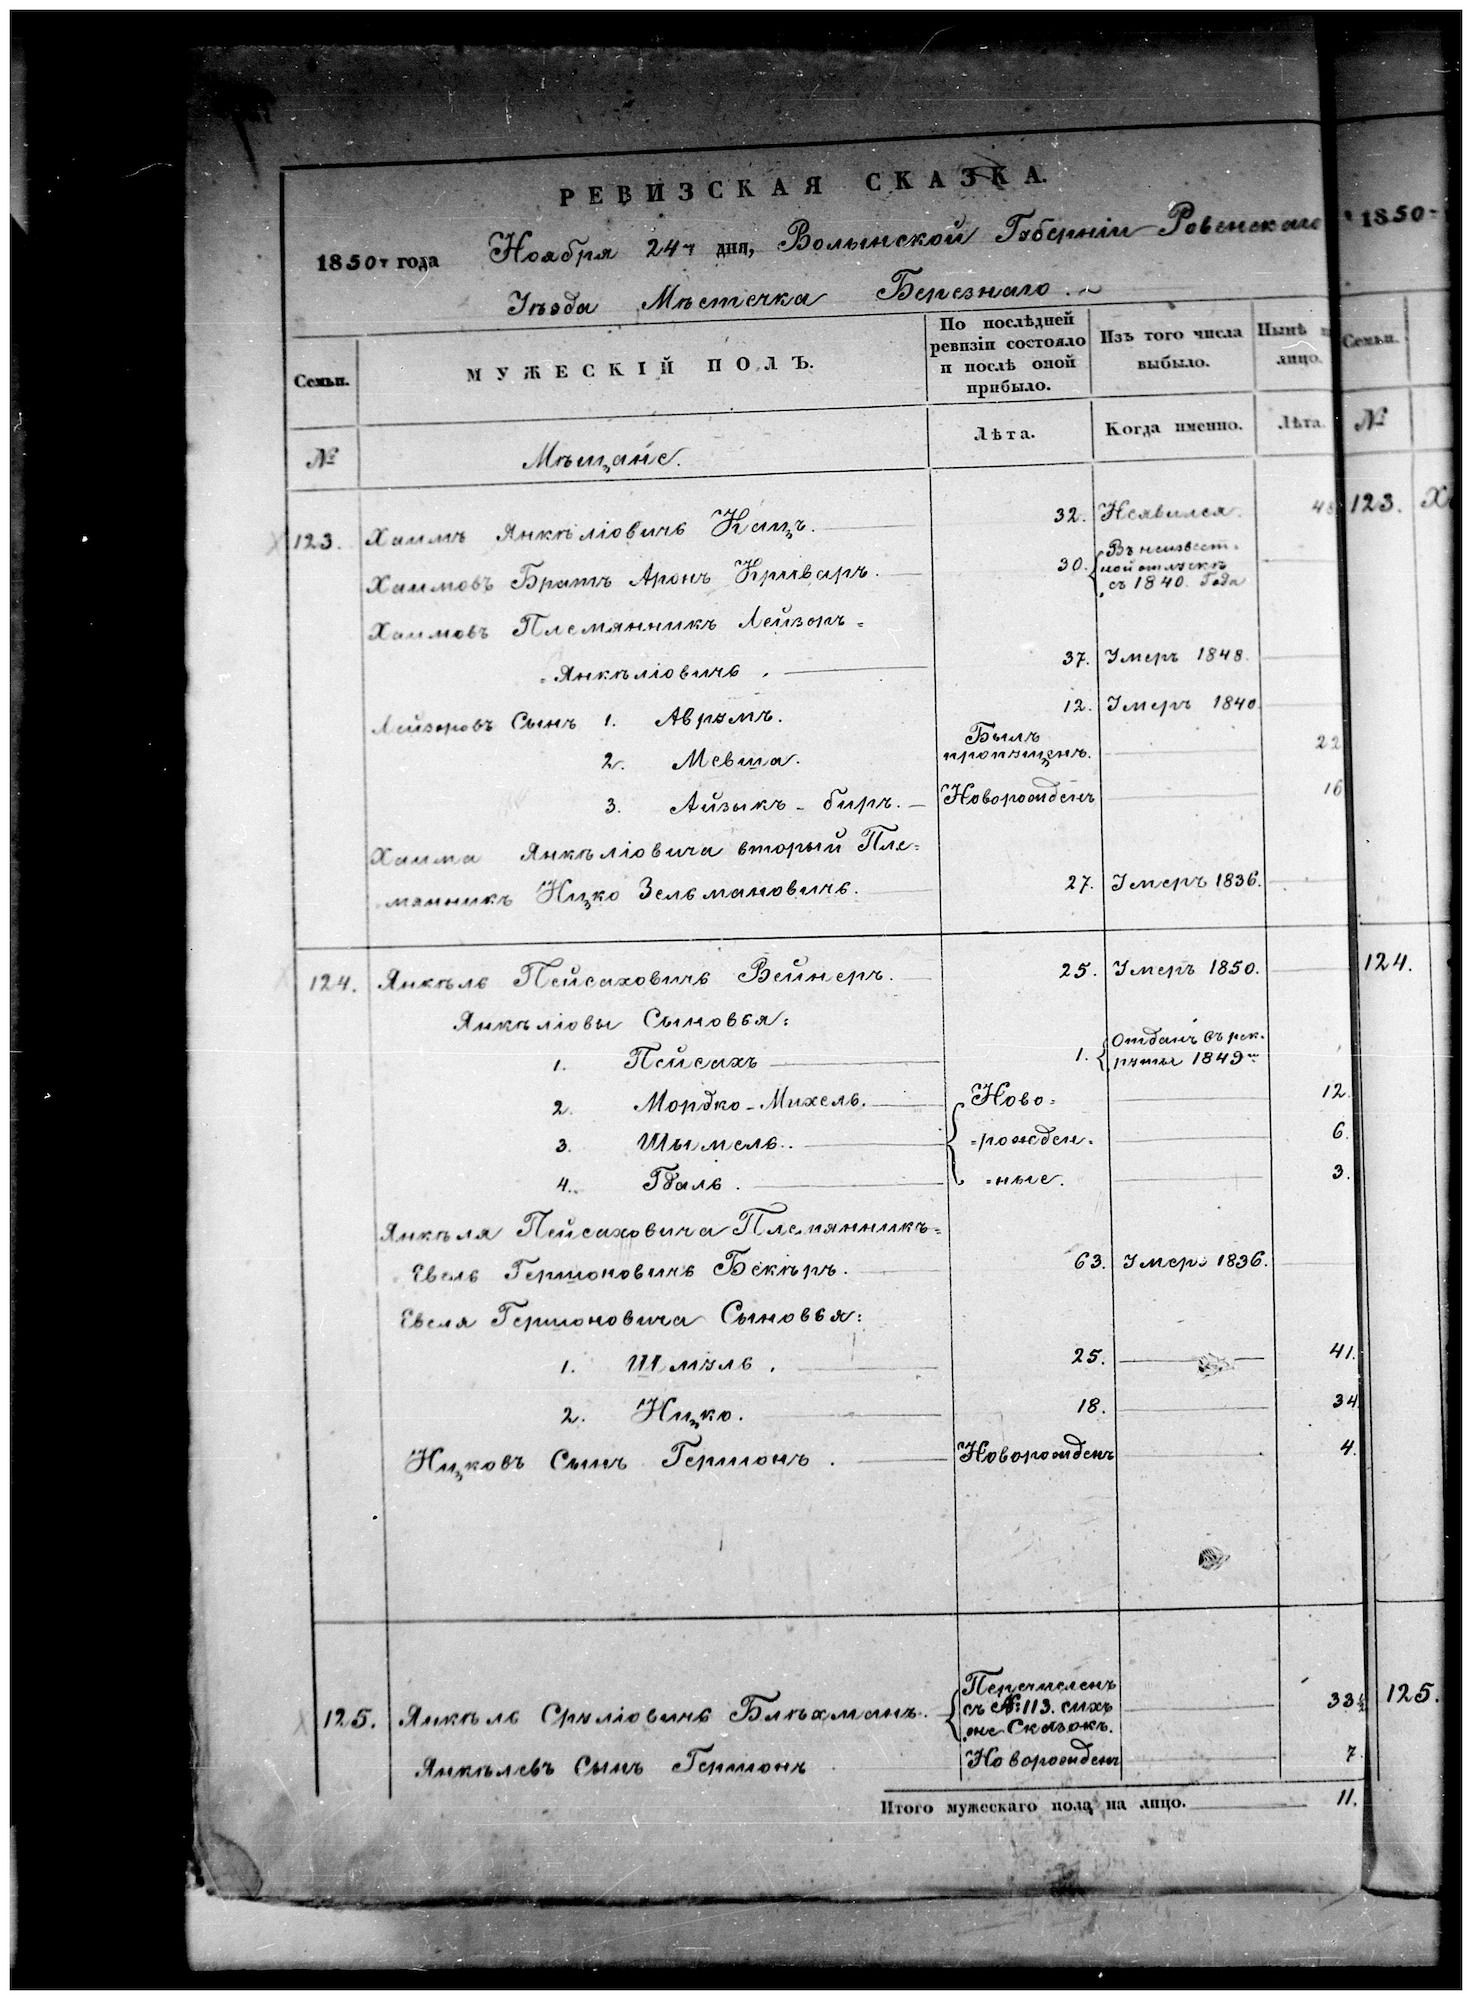 РЕВИЗСКАЯ СКАЗКА.
1850 г года Ноября 24 г дня, Волынской Губерніи Ровенскаго
Уѣзда Мѣстечка Березнаго.
Семьи.
МУЖЕСКІЙ ПОЛЪ.
По послѣдней ревизіи состояло и послѣ оной прибыло.
Изъ того числа выбыло.
Нынѣ
лицо.
№
Мѣщане.
Лѣта.
Когда именно.
Лѣта.
123. Хаимъ Янкѣліовичь Кацъ. 32. Неявился. 48
Хаимовъ Братъ Аронъ Криваръ. 30. Въ неизвест-
ной отлучкѣ
съ 1840. Года
Хаимовъ Племянникъ Лейзоръ =
Янкѣліовичь. 37. Умеръ 1848.
Лейзоровъ Сынъ 1. Аврумъ. 12. Умеръ 1840.
2. Мевша. Былъ пропущенъ. 22
3. Айзыкъ - биръ. Новорожденъ 16
Хаима Янкѣліовича вторый Пле=
мянникъ Ицко Зельмановичь. 27. Умеръ 1836.
124. Янкѣль Пейсаховичь Вейнеръ. 25. Умеръ 1850.
Янкѣліовы Сыновья:
1. Пейсахъ 1. Отданъ въ рек-
руты 1849
2. Мордко-Михель. Ново= 12.
3. Шымель. =рожден= 6.
4. Гдаль. =ные. 3.
Янкѣля Пейсаховича Племянникъ=
Евель Гершоновичь Бекѣръ. 63. Умеръ 1836.
Евеля Гершоновича Сыновья:
1. Шмуль. 25. 41.
2. Ицко. 18. 34
Ицковъ Сынъ Гершонъ. Новорожденъ 4.
125. Янкѣль Сруліовичь Блѣхманъ. Перечисленъ
съ № 113. сихъ
же Сказокъ. 33½
Янкѣлевъ Сынъ Гершонъ Новорожденъ 7.
Итого мужескаго пола на лицо. 11.
1850
Семьи.
№
123. Ха
124.
125.